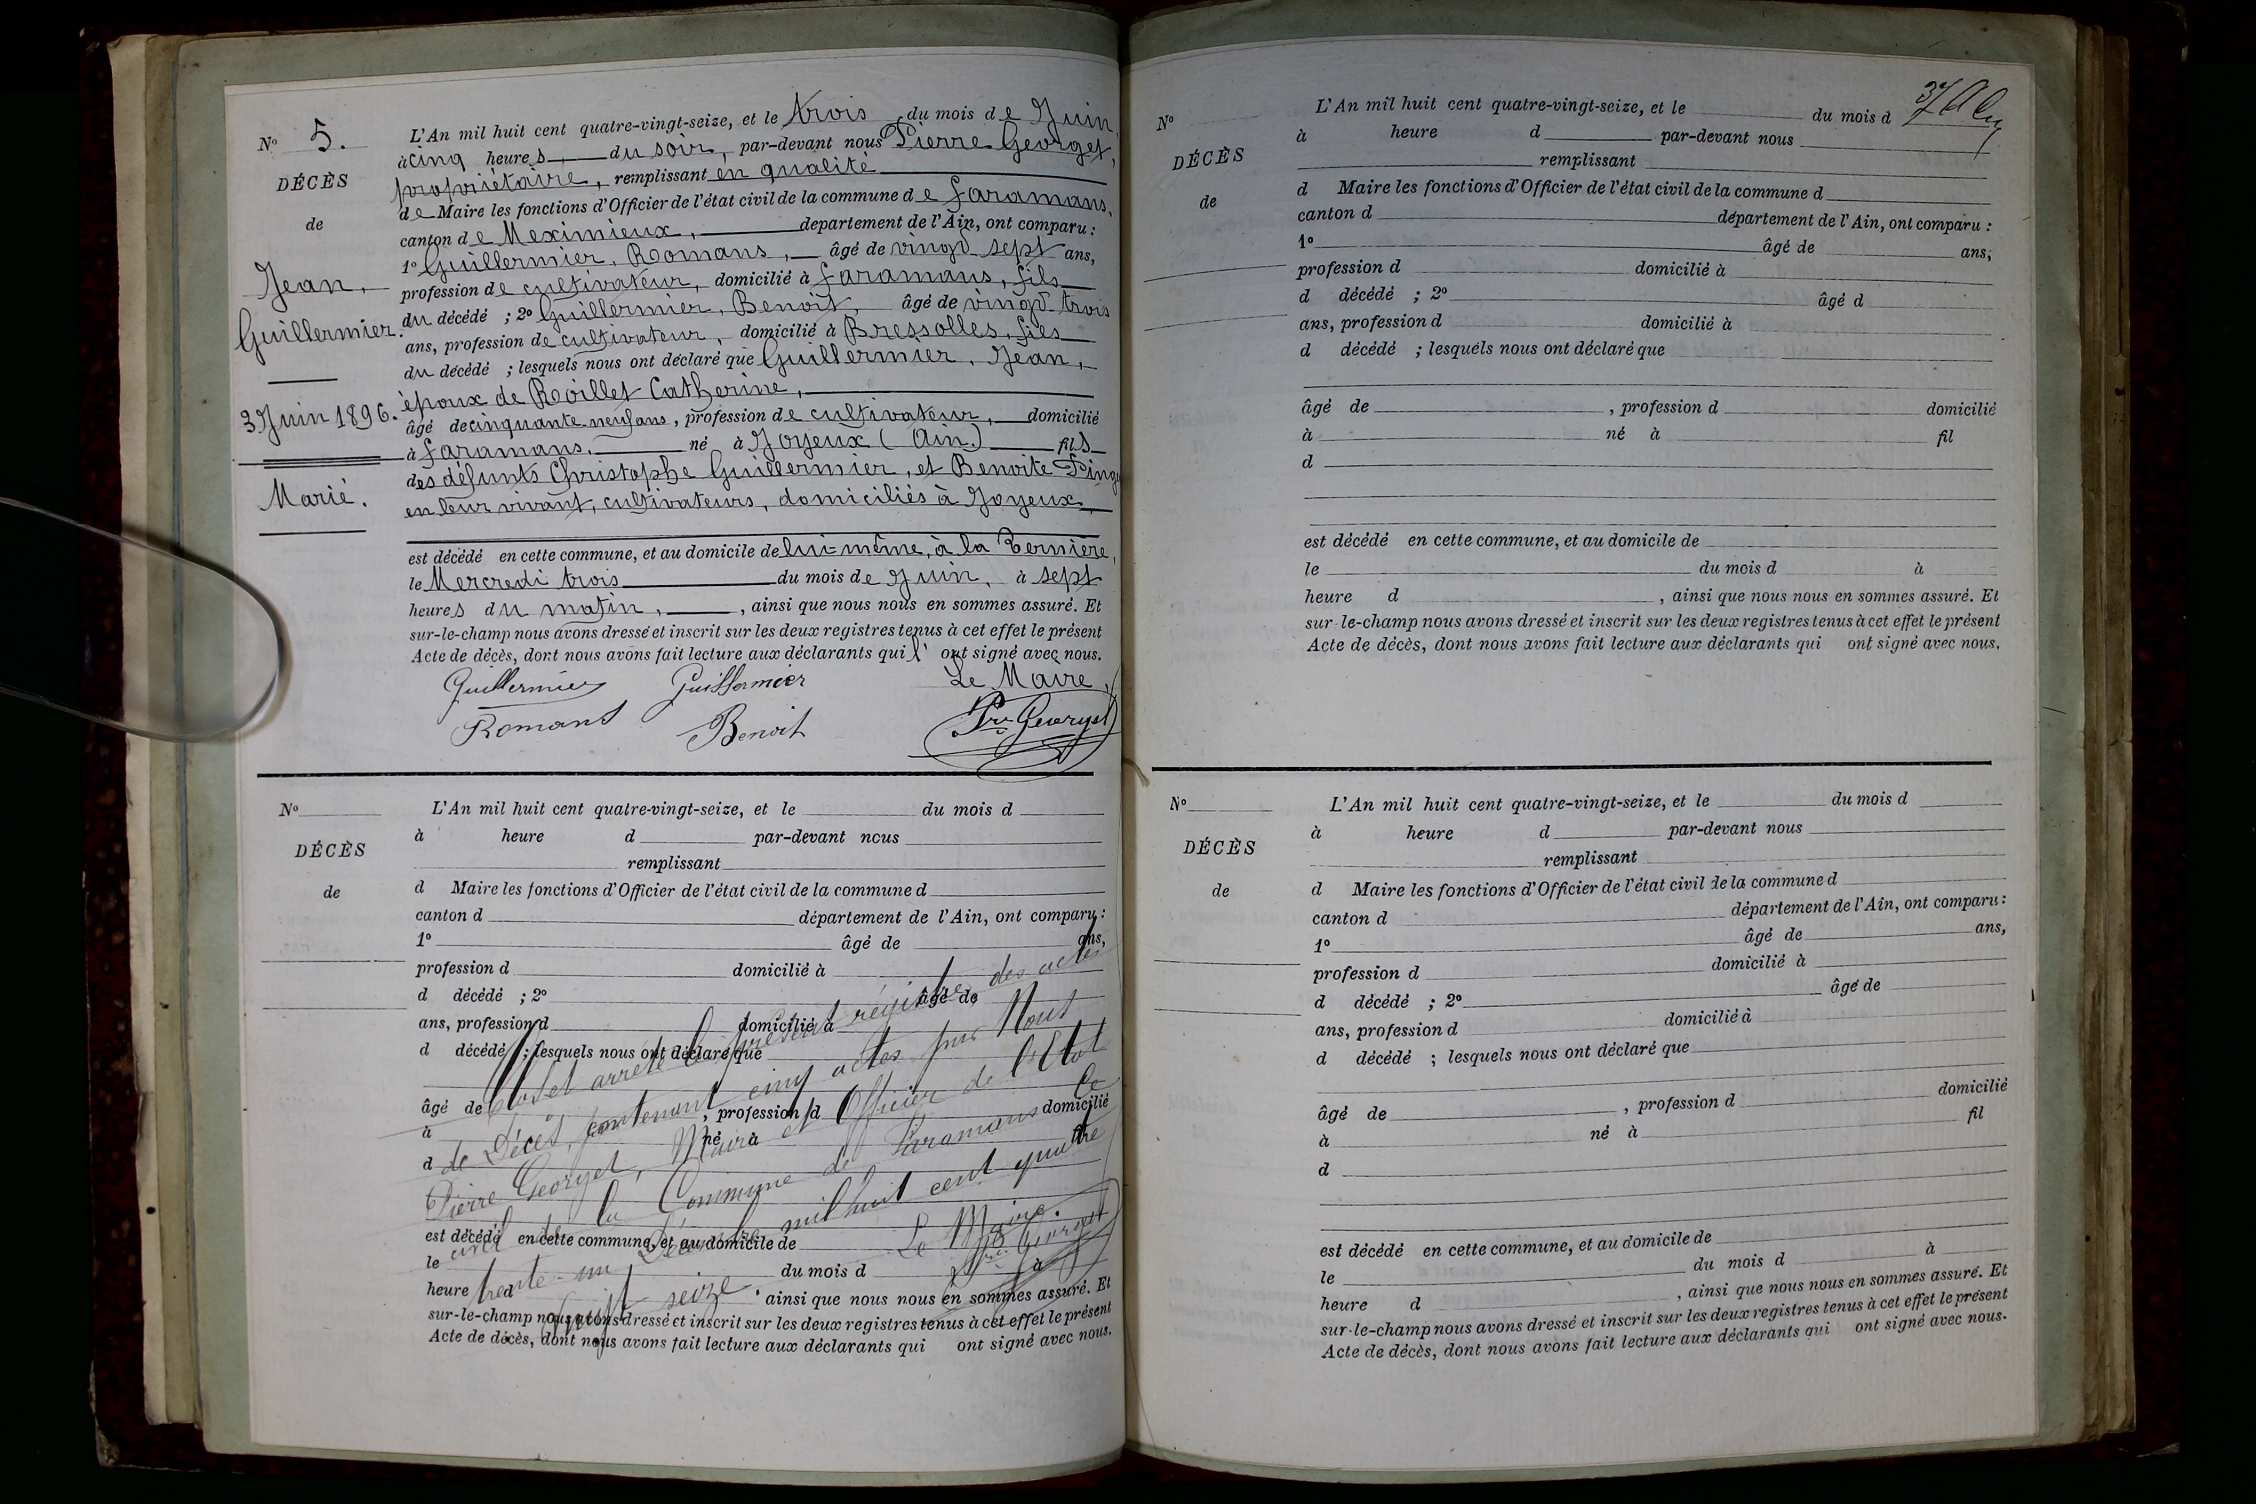 Nº 5.
DÉCÈS
de
Jean,
Guillermier.
3 Juin 1896.
Marié.
L'An mil huit cent quatre-vingt-seize, et le trois du mois de Juin,
à cinq heures du soir, par-devant nous Pierre Georget,
propriétaire, remplissant en qualité
de Maire les fonctions d'Officier de l'état civil de la commune de Faramans,
canton de Meximieux, département de l'Ain, ont comparu :
1º Guillermier, Romans, âgé de vingt sept ans,
profession de cultivateur, domicilié à Faramans, fils
du décédé ; 2º Guillermier, Benoît, âgé de vingt trois
ans, profession de cultivateur, domicilié à Bressolles, fils
du décédé ; lesquels nous ont déclaré que Guillermier, Jean,
époux de Roillet Catherine,
âgé de cinquante neuf ans, profession de cultivateur, domicilié
à Faramans, né à Joyeux (Ain.) fils
des défunts Christophe Guillermier, et Benoite
en leur vivant, cultivateurs, domiciliés à Joyeux,
est décédé en cette commune, et au domicile de lui-même, à la
le Mercredi trois du mois de Juin, à sept
heures du matin, , ainsi que nous nous en sommes assuré. Et
sur-le-champ nous avons dressé et inscrit sur les deux registres tenus à cet effet le présent
Acte de décès, dont nous avons fait lecture aux déclarants qui l' ont signé avec nous.
Guillermier Guillermier Le Maire,
Romans Benoit Pre Georget
Nº
DÉCÈS
de
L'An mil huit cent quatre-vingt-seize, et le du mois d
à heure d par-devant nous
remplissant
d Maire les fonctions d'Officier de l'état civil de la commune d
canton d département de l'Ain, ont comparu :
1º âgé de ans,
profession d domicilié à
d décédé ; 2º âgé de
ans, profession d domicilié à
d décédé ; lesquels nous ont déclaré que
âgé de , profession d domicilié
à né à fil
d
est décédé en cette commune, et au domicile de
le du mois d à
heure d , ainsi que nous nous en sommes assuré. Et
sur-le-champ nous avons dressé et inscrit sur les deux registres tenus à cet effet le présent
Acte de décès, dont nous avons fait lecture aux déclarants qui ont signé avec nous.
Clos et arrêté le présent régistre des actes
de Décès, contenant cinq actes par Nous
Pierre Georget, Maire et Officier de l'Etat
civil de la Commune de Faramans Ce
trente-un Décembre mil huit cent quatre
vingt seize
Le Maire.
Pre Georget
Nº
DÉCÈS
de
L'An mil huit cent quatre-vingt-seize, et le du mois d
à heure d par-devant nous
remplissant
d Maire les fonctions d'Officier de l'état civil de la commune d
canton d département de l'Ain, ont comparu :
1º âgé de ans,
profession d domicilié à
d décédé ; 2º âgé d
ans, profession d domicilié à
d décédé ; lesquels nous ont déclaré que
âgé de , profession d domicilié
à né à fil
d
est décédé en cette commune, et au domicile de
le du mois d à
heure d , ainsi que nous nous en sommes assuré. Et
sur-le-champ nous avons dressé et inscrit sur les deux registres tenus à cet effet le présent
Acte de décès, dont nous avons fait lecture aux déclarants qui ont signé avec nous.
Nº
DÉCÈS
de
L'An mil huit cent quatre-vingt-seize, et le du mois d
à heure d par-devant nous
remplissant
d Maire les fonctions d'Officier de l'état civil de la commune d
canton d département de l'Ain, ont comparu :
1º âgé de ans,
profession d domicilié à
d décédé ; 2º âgé de
ans, profession d domicilié à
d décédé ; lesquels nous ont déclaré que
âgé de , profession d domicilié
à né à fil
d
est décédé en cette commune, et au domicile de
le du mois d à
heure d , ainsi que nous nous en sommes assuré. Et
sur-le-champ nous avons dressé et inscrit sur les deux registres tenus à cet effet le présent
Acte de décès, dont nous avons fait lecture aux déclarants qui ont signé avec nous.